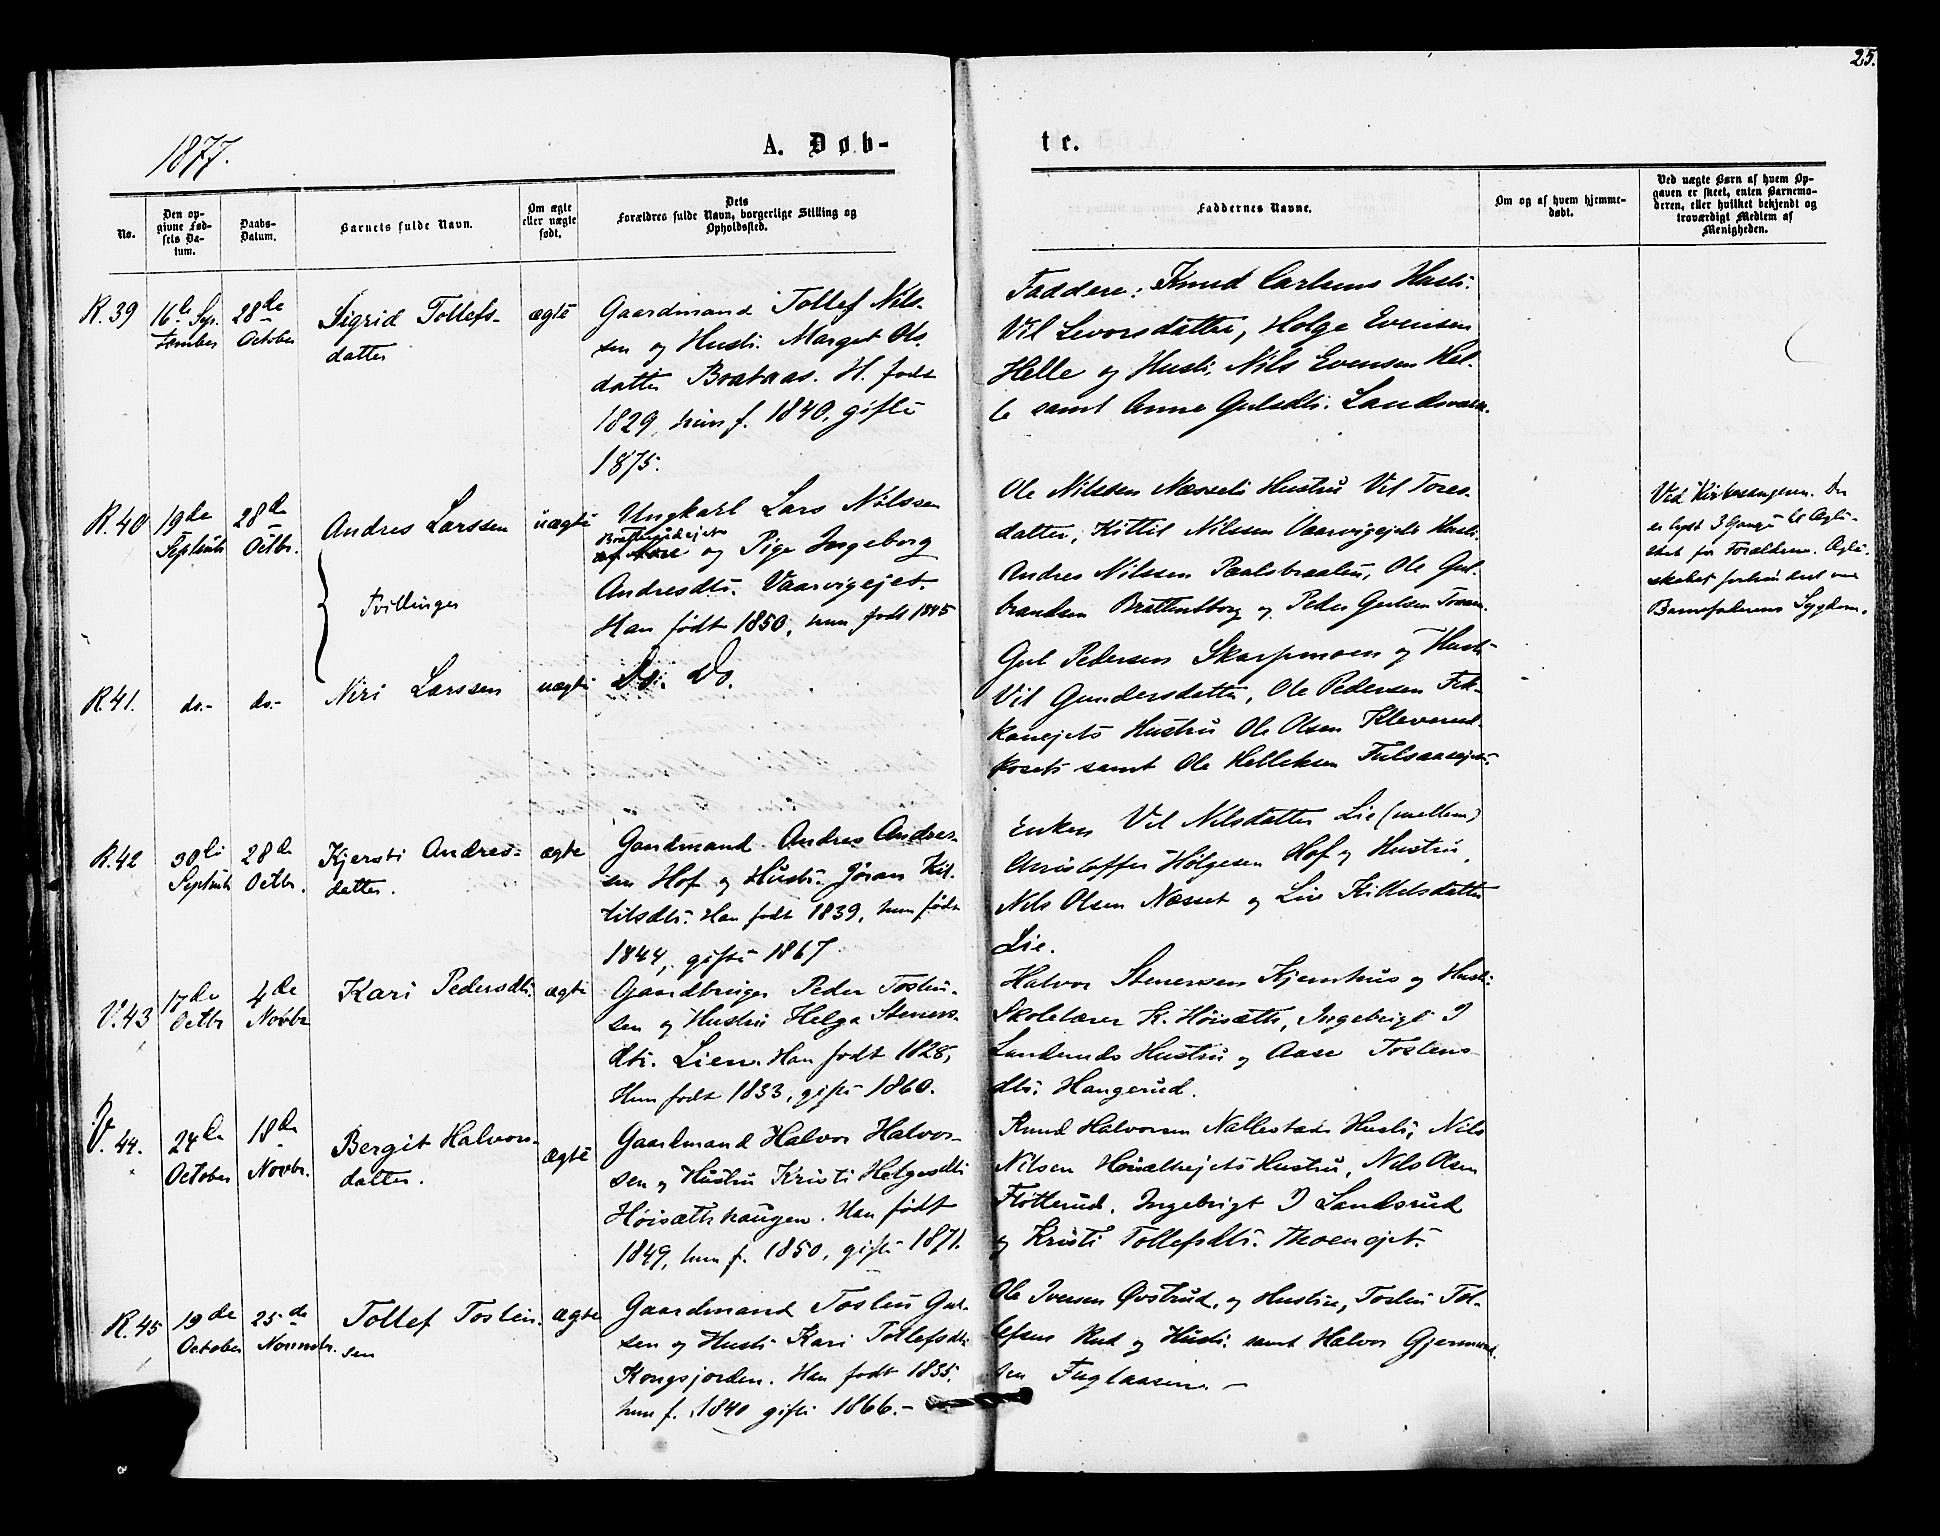 25.
1877.
A. Døb-
te.
No.
Den op-
givne Fød-
sels Da-
tum.
Daabs-
Datum.
Barnets fulde Navn.
Om ægte
eller uægte
født.
Dets
Forældres fulde Navn, borgerlige Stilling og
Opholdssted.
Faddernes Navne.
Om og af hvem hjemme-
døbt.
Ved uægte Børn af hvem Op-
gaven er skeet, enten Barnemo-
deren, eller hvilket bekjendt og
troværdigt Medlem af
Menigheden.
R. 39
16de Sep-
tember
28de
October
Sigrid Tollefs-
datter
ægte
Gaardmand Tollef Nils-
sen og Hustr. Margit Ols-
datter Braataas. H. født
1829, hun f. 1840, gifte
1875.
Faddere: Knud Carlsens Hustr.
Vil Levorsdatter, Holge Evensen
Helle og Hustr. Nils Evensen Hel-
le samt Anne Gulsdtr.
R. 40
19de
Septmbr
28de
Octbr.
Andres Larssen
uægte
Ungkarl Lars Nilssen
og Pige Ingeborg
Andresdtr. Vaarvigejet.
Han født 1850, hun født 1845
Ole Nilssen Næssets Hustru Vil Tores-
datter, Kittil Nilssen Vaarvigejets Hustr.
Andres Nilssen Paalsbraaten, Ole Gul-
brandsen Brattensborg og Peder Gulsen
Ved Kirkesangeren. Der
er lyst 3 Gange til Ægte-
skab for Forældrene. Ægte-
skabet forhindret ved
Barnefaderens Sygdom.
Tvillinger
R. 41.
do.-
do.-
Niri Larssen
uægte
Do. Do.
Gul Pedersen Skarpmoen og Hustr.
Vil Gundersdatter, Ole Pedersen Fek-
kanejets Hustru Ole Olsen Kleverud-
kosets samt Ole Helleksen Fulsaasejet.
R. 42
30te
Septmbr
28de
Octbr.
Kjersti Andres-
datter.
ægte
Gaardmand Andres Andres-
sen Hof og Hustr. Jøran Kit-
tilsdtr. Han født 1839, hun født
1844, gifte 1867.
Enken Vil Nilsdatter Lie (mellem)
Christoffer Holgesen Hof og Hustru,
Nils Olsen Næsset og Liv Kittilsdatter
Lie.
V. 43
17de
Octbr
4de
Novbr
Kari Pedersdtr.
ægte
Gaardbruger Peder Tosten-
sen og Hustru Helga Steners-
dtr. Lien. Han født 1828,
Hun født 1833, gifte 1860.
Halvor Stenersen Kjemhus og Hustr.
Skolelærer K. Høisæth, Ingebrigt I
Landeruds Hustru og Aase Tostens-
dtr. Haugerud.
V. 44.
24de
October
18de
Novbr.
Bergit Halvors-
datter.
ægte
Gaardmand Halvor Halvor-
sen og Hustru Kristi Helgesdtr
Høisæthhaugen. Han født
1849, hun f. 1850, gifte 1871.
Knud Halvorsen Nallestads Hustr., Nils
Nilsen Høisæthejets Hustru, Nils Olsen
Fløtterud, Ingebrigt I Landsrud
og Kristi Tollefsdtr. Moenejet.
R. 45
19de
October
25de
Novmbr.
Tollef Tosten-
sen
ægte
Gaardmand Tosten Gul-
sen og Hustr. Kari Tollefsdtr.
Kongsjorden. Han født 1835,
hun f. 1840 gifte 1866.-
Ole Iversen Øvstrud, og Hustru, Tosten Tol-
lefsen Rud og Hustr. samt Halvor Gjermund-
sen Fuglaasen. -